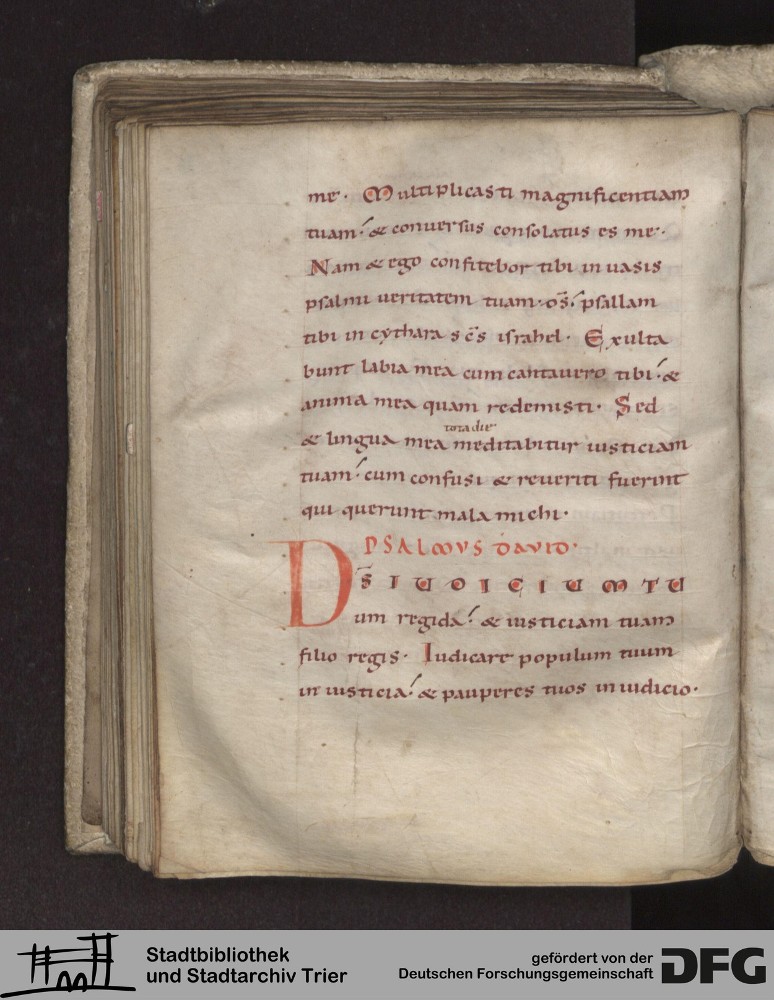 me· Multiplicasti magnificentiam
tuam·́ & conuersus consolatus es me·
Nam & ego confitebor tibi in uasis
psalmi ueritatem tuam· ds̄·́ psallam
tibi in cythara sc̄s israhel· Exulta
bunt labia mea cum cantauero tibi·́ &
anima mea quam redemisti· Sed
& lingua mea meditabitur iusticiam
tota die
tuam·́ cum confusi & reueriti fuerint
qui querunt mala michi·
PSALMVS DAVID·
Ds̄ IUDICIUM TU
um regi da·́ & iusticiam tuam
filio regis· Iudicare populum tuum
in iusticia·́ & pauperes tuos in iudicio·
Stadtbibliothek
und Stadtarchiv Trier
gefördert von der
Deutschen Forschungsgemeinschaft
DFG